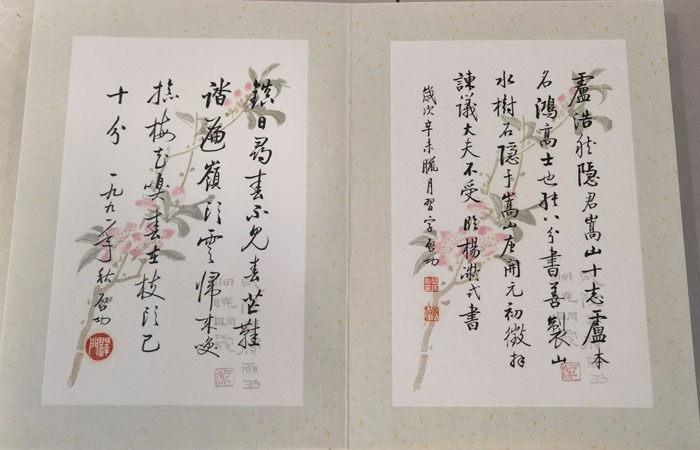 盧浩然隱君嵩山十志盧本
名鴻高士也能八分書善製山
水樹石隱于嵩山唐開元初徵拜
諫議大夫不受 臨楊凝式書
歲次辛未臘月習字啟功
鎮日尋春不見春芒鞋
踏遍嶺頭雲歸來咲
捻梅花嗅春在枝頭已
十分 一九九一年秋 啟功